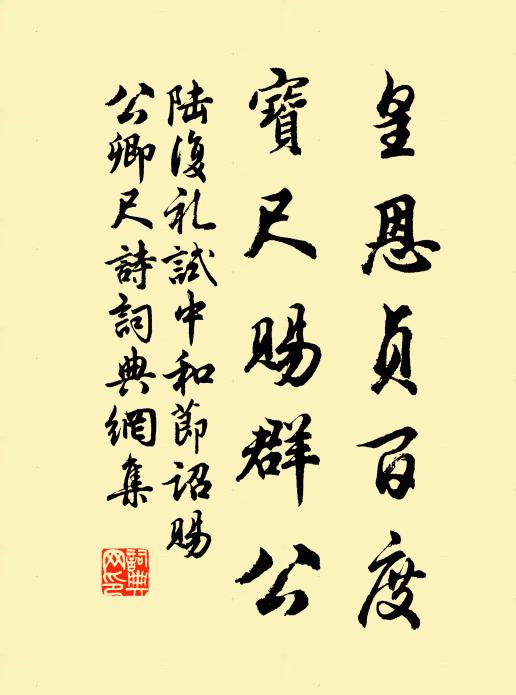 皇恩貞百度
寶尺賜群公
陆復礼試中和節诏賜
公卿尺詩詞典網集
詞典
网印